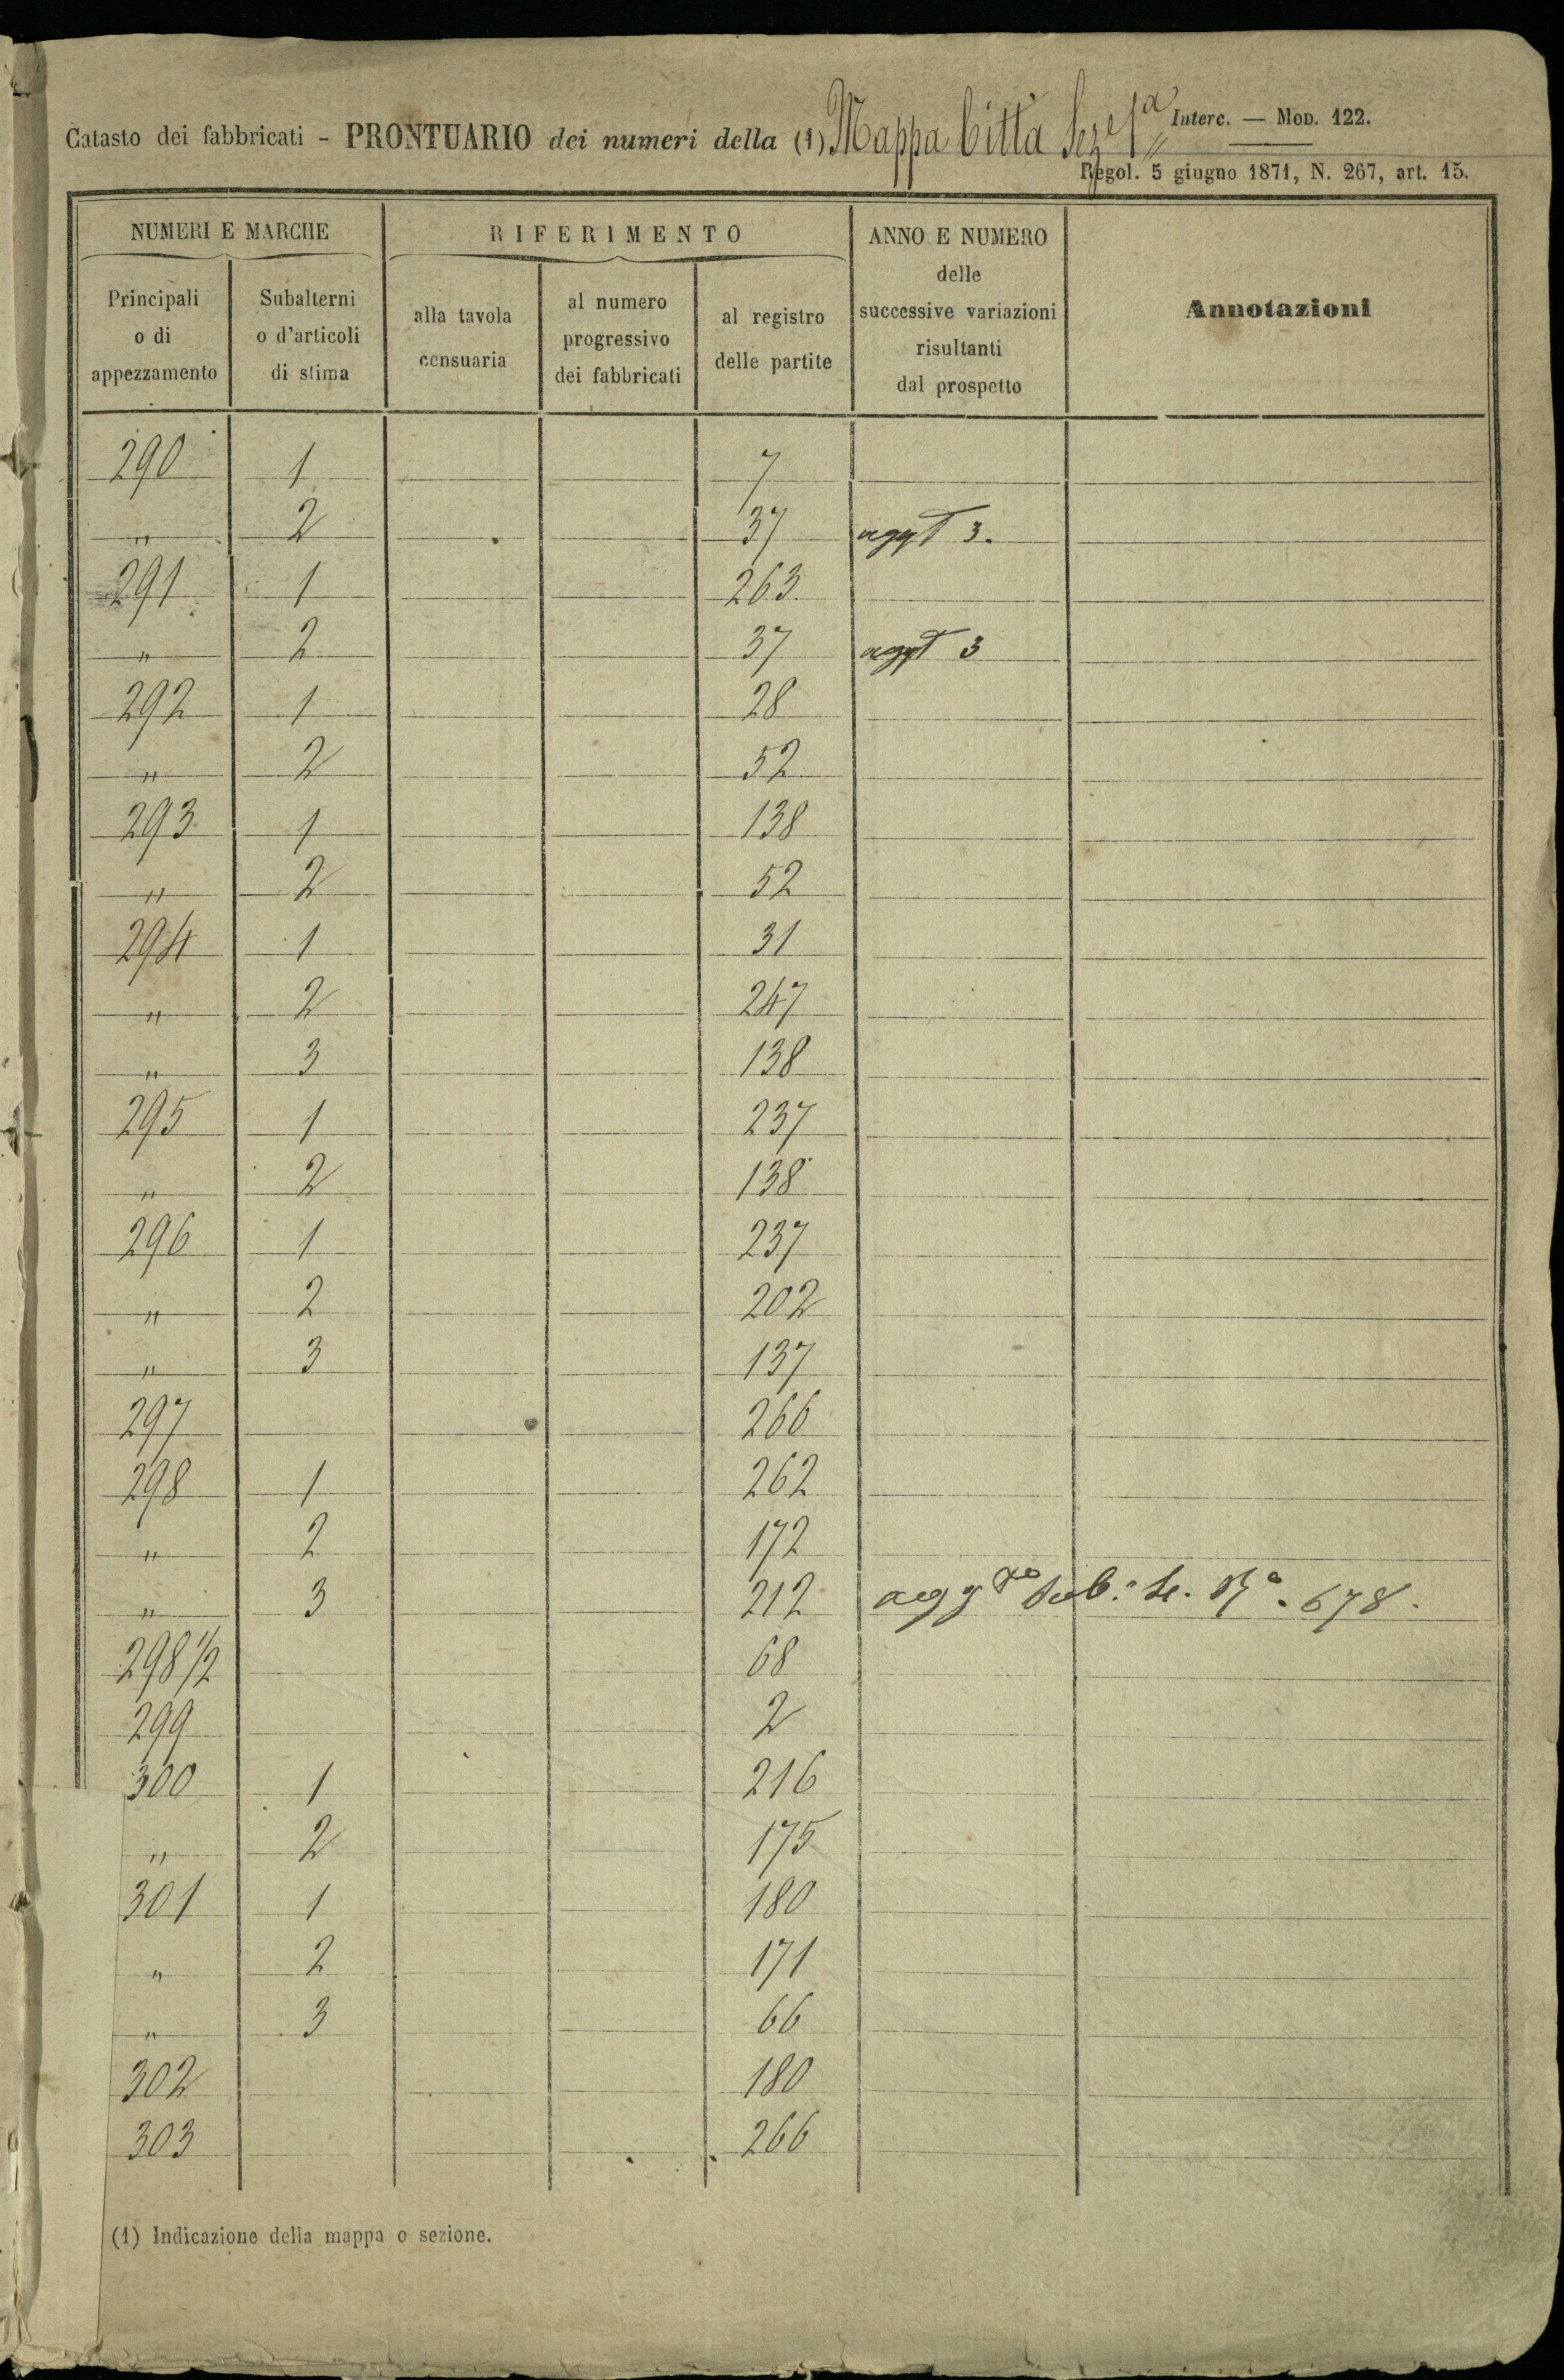 Catasto dei fabbricati – PRONTUARIO dei numeri della (1) Mappa Città Sez.e 1a
Interc. — Mod. 122.
Regol. 5 giugno 1871, N. 267, art. 15.
NUMERI E MARCHE
RIFERIMENTO
ANNO E NUMERO
delle
successive variazioni
risultanti
dal prospetto
Annotazioni
Principali
o di
appezzamento
Subalterni
o d'articoli
di stima
alla tavola
censuaria
al numero
progressivo
dei fabbricati
al registro
delle partite
290 1 7
" 2 37 aggt 3.
291 1 263
" 2 37 aggt 3
292 1 28
" 2 52
293 1 138
" 2 52
294 1 31
" 2 247
" 3 138
295 1 237
" 2 138
296 1 237
" 2 202
" 3 137
297 266
298 1 262
" 2 172
" 3 212 agg sub. 678.
298 1/2 68
299 2
300 1 216
" 2 175
301 1 180
" 2 171
" 3 66
302 180
303 266
(1) Indicazione della mappa o sezione.